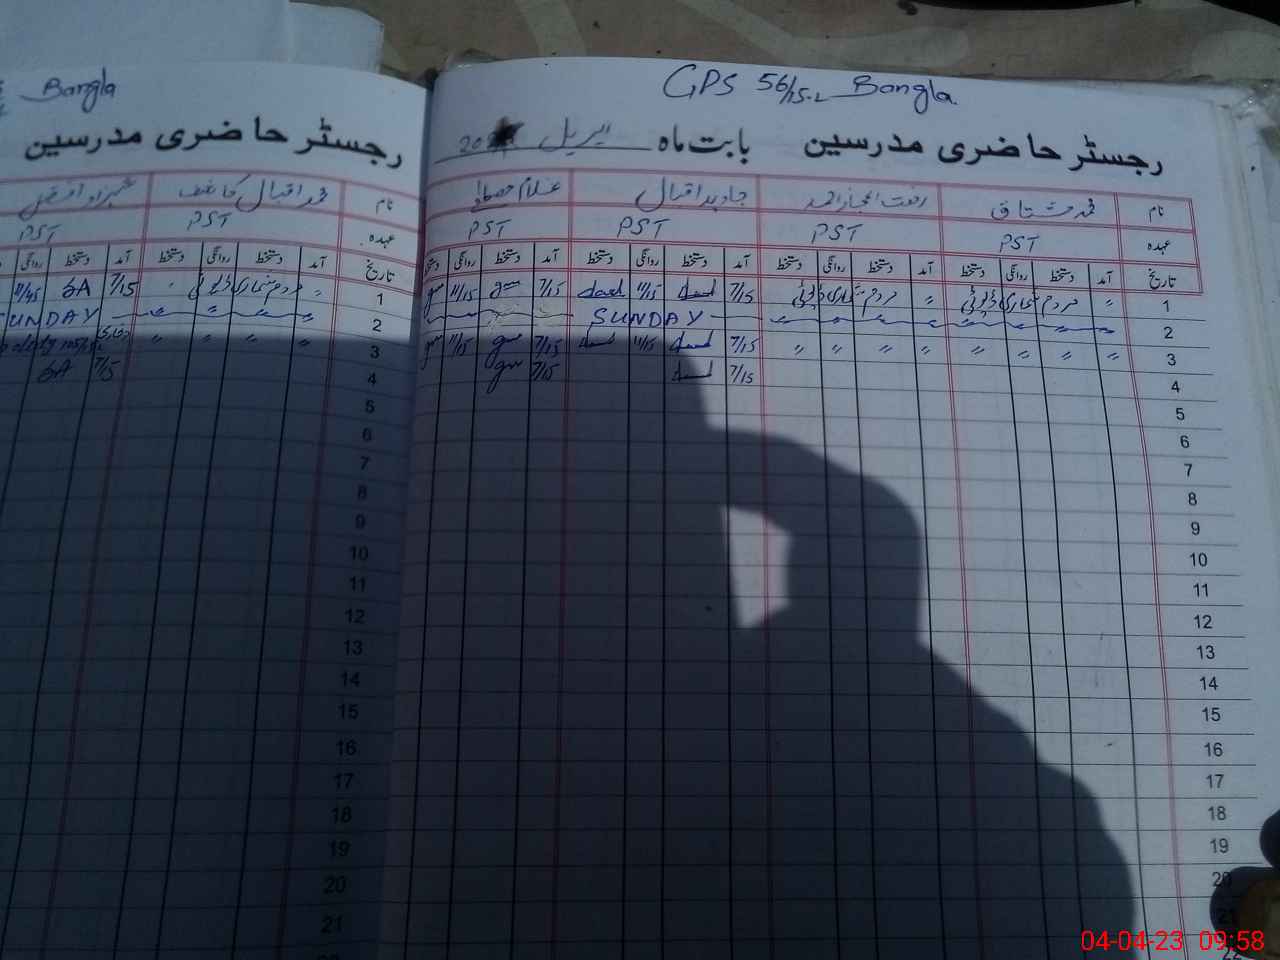 Bangla
GPS 56/15-L Bangla
رجسٹر حاضری مدرسین
رجسٹر حاضری مدرسین بابت ماہ اپریل
نام محمد مشتاق رفعت اعجاز احمد جاوید اقبال غلام
نام محمد اقبال کاشف
عہدہ PST PST PST PST
عہدہ PST PST
تاریخ آمد دستخط روانگی دستخط آمد دستخط روانگی دستخط آمد دستخط روانگی دستخط آمد دستخط روانگی دستخط
تاریخ آمد دستخط روانگی دستخط آمد دستخط روانگی
1 〃 مردم شماری ڈیوٹی 〃 مردم شماری ڈیوٹی 7/15 11/15 7/15 11/15
1 〃 مردم شماری ڈیوٹی 7/15 SA 11/45
2 SUNDAY
2 SUNDAY
3 〃 〃 〃 〃 〃 〃 〃 〃 7/15 11/15 7/15 11/15
3 〃 〃 〃 〃
4 7/15 7/15
4 7/15 SA
5
5
6
6
7
7
8
8
9
9
10
10
11
11
12
12
13
13
14
14
15
15
16
16
17
17
18
18
19
19
20
20
21
21
22
04-04-23 09:58